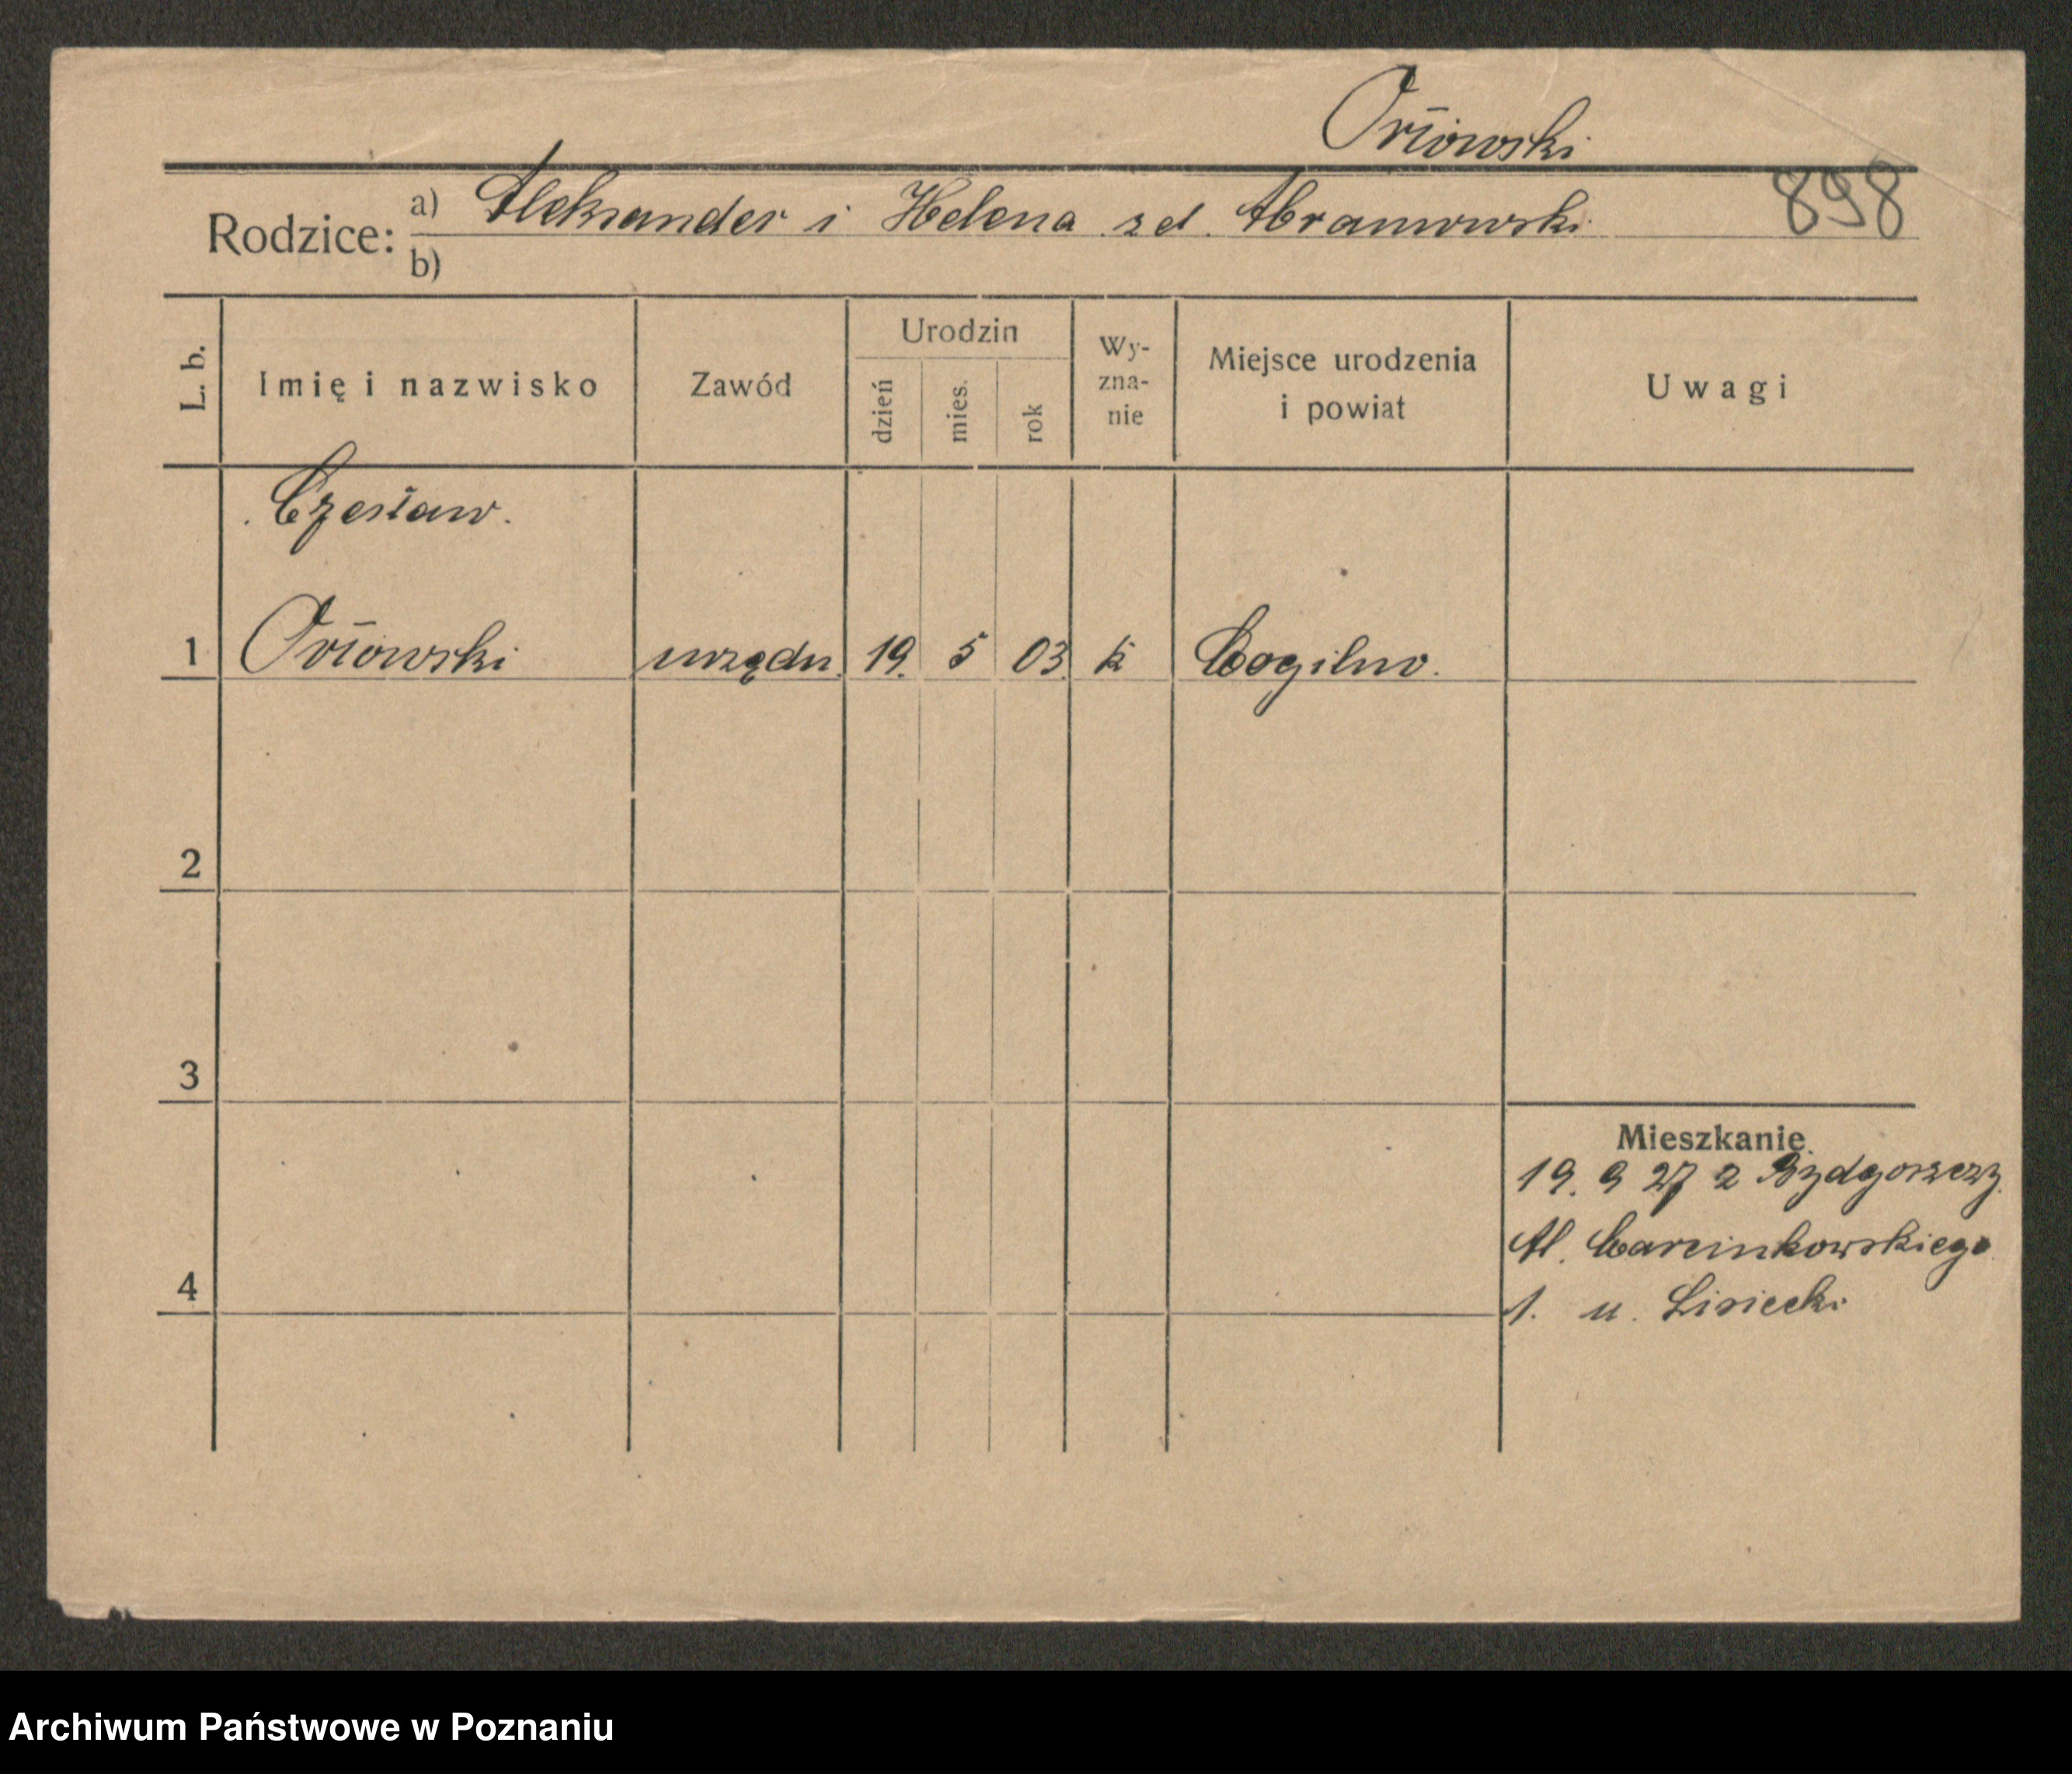 Orłowski
898
Rodzice: a) Aleksander i Helena z d. Abramowski
b)
L. b.
Imię i nazwisko
Zawód
Urodzin
dzień
mies.
rok
Wy-
zna-
nie
Miejsce urodzenia
i powiat
Uwagi
Czesław.
1 Orłowski urzędn. 19. 5 03 k Mogilno.
2
3
Mieszkanie
19. 9 27 z Bydgoszczy
Al. Marcinkowskiego
4
1. u. Lisiecki
Archiwum Państwowe w Poznaniu